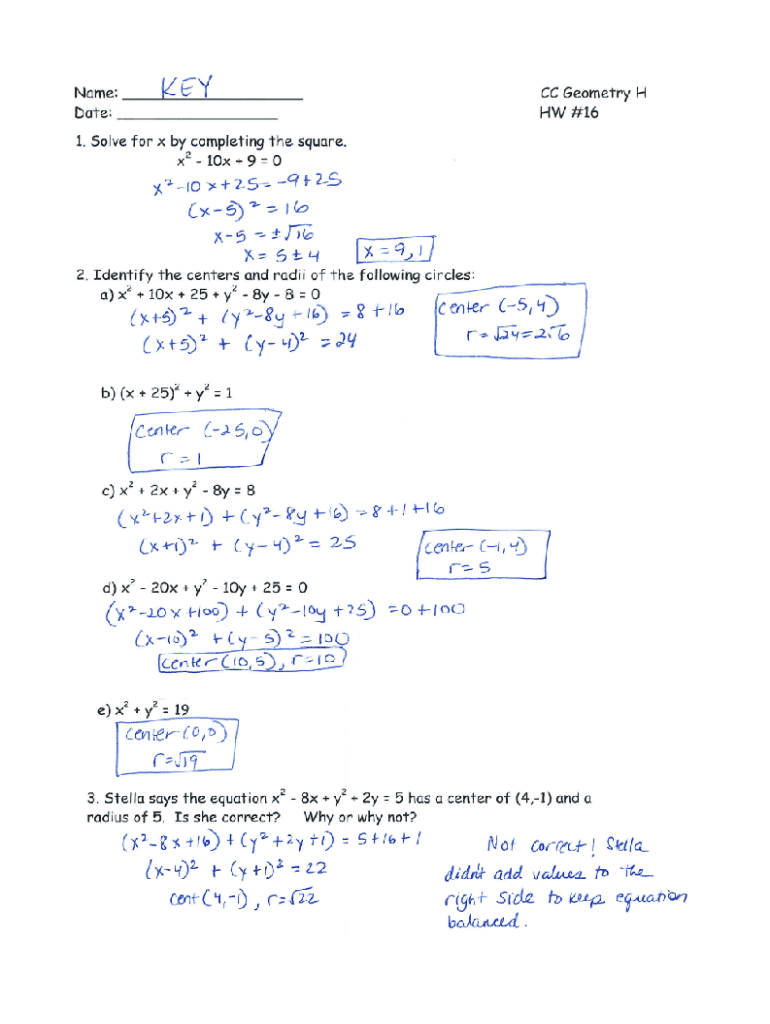 Name: KEY CC Geometry H
Date: HW #16
1. Solve for x by completing the square.
x² - 10x + 9 = 0
x²-10x+25=-9+25
(x-5)²=16
x-5=±√16
x=5±4 x=9,1
2. Identify the centers and radii of the following circles:
a) x² + 10x + 25 + y² - 8y - 8 = 0
(x+5)² + (y²-8y+16)=8+16 center (-5,4)
(x+5)² + (y-4)²=24 r=√24=2√6
b) (x + 25)² + y² = 1
center (-25,0)
r=1
c) x² + 2x + y² - 8y = 8
(x²+2x+1)+(y²-8y+16)=8+1+16
(x+1)² + (y-4)²=25 center (-1,4)
r=5
d) x² - 20x + y² - 10y + 25 = 0
(x²-20x+100)+(y²-10y+25)=0+100
(x-10)² +(y-5)²=100
center (10,5), r=10
e) x² + y² = 19
center (0,0)
r=√19
3. Stella says the equation x² - 8x + y² + 2y = 5 has a center of (4,-1) and a
radius of 5. Is she correct? Why or why not?
(x²-8x+16)+(y²+2y+1)=5+16+1 Not correct! Stella
(x-4)² + (y+1)²=22 didn't add values to the
cent(4,-1), r=√22 right side to keep equation
balanced.